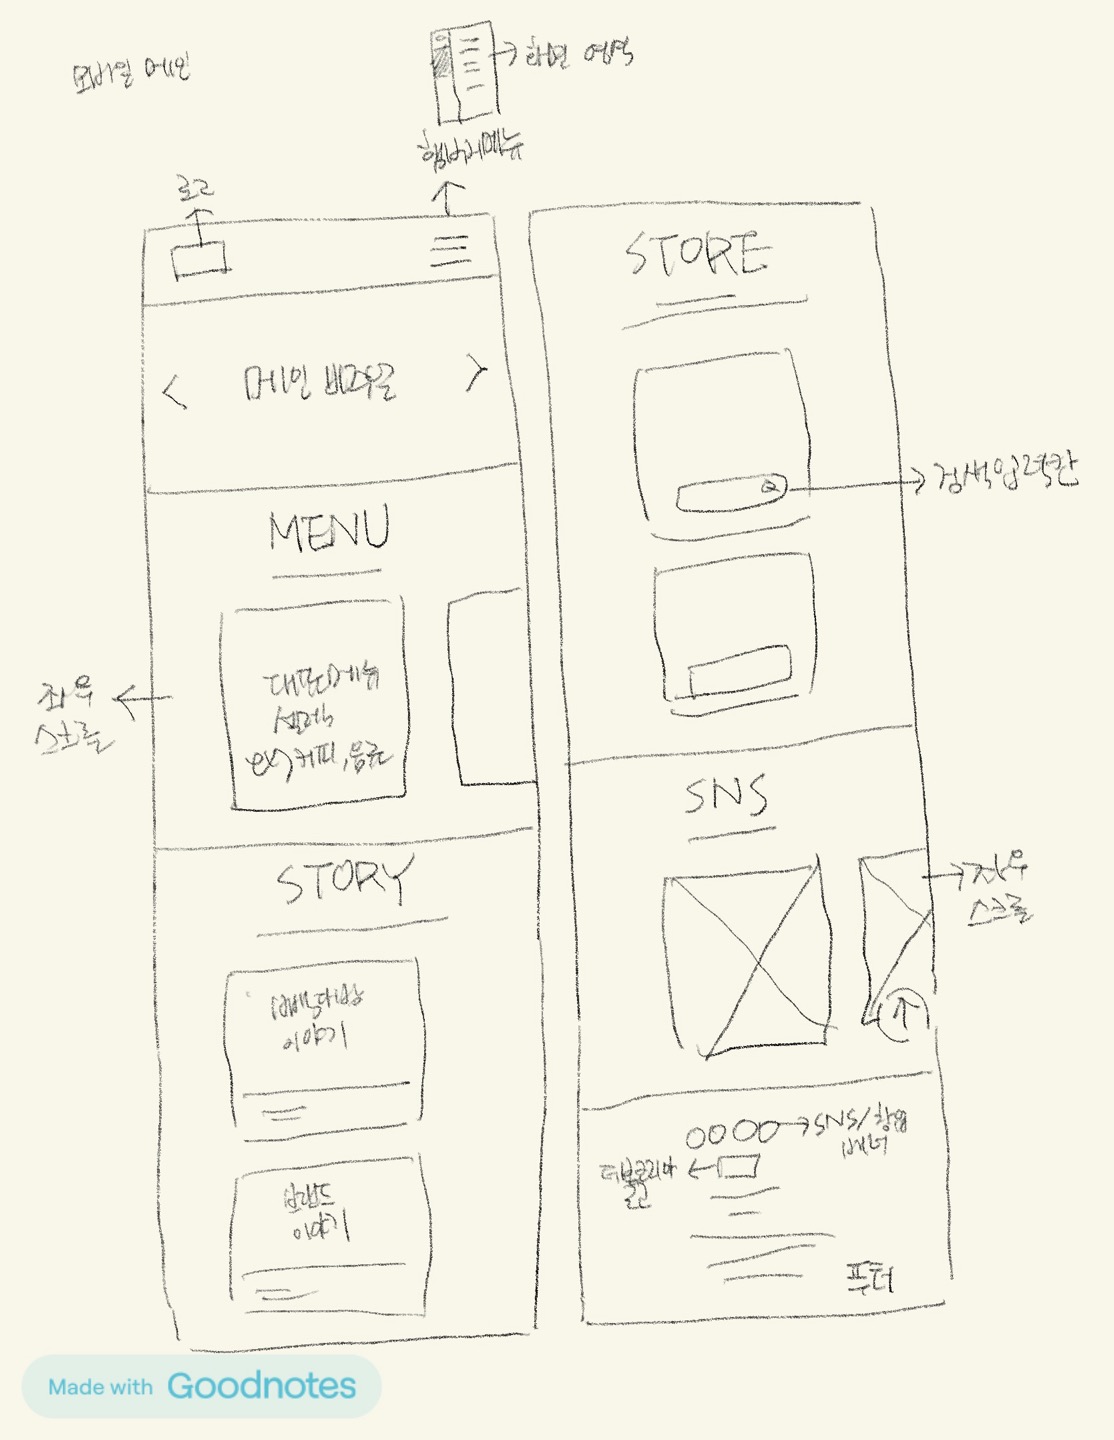 모바일 메인
화면 영역
햄버거메뉴
로고
메인 비주얼
MENU
대표메뉴
ex) 커피, 음료
좌우
스크롤
STORY
이야기
브랜드
이야기
STORE
검색입력칸
SNS
좌우
스크롤
SNS/창업
배너
더본코리아
로고
푸터
Made with Goodnotes